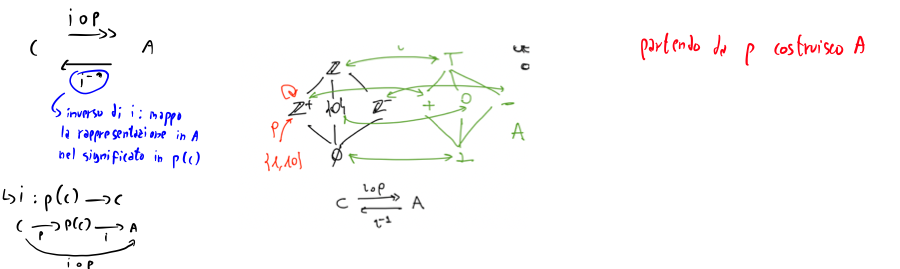 i o p
C A
i⁻¹
inverso di i: mappo
la rappresentazione in A
nel significato in p(c)
↳ i : p(c) → C
C → p(c) → A
p i
i o p
i
ℤ T
ℤ⁺ {0} ℤ⁻ + 0 -
p
{1,10}
∅ ⊥
A
i o p
C A
i⁻¹
partendo da p costruisco A